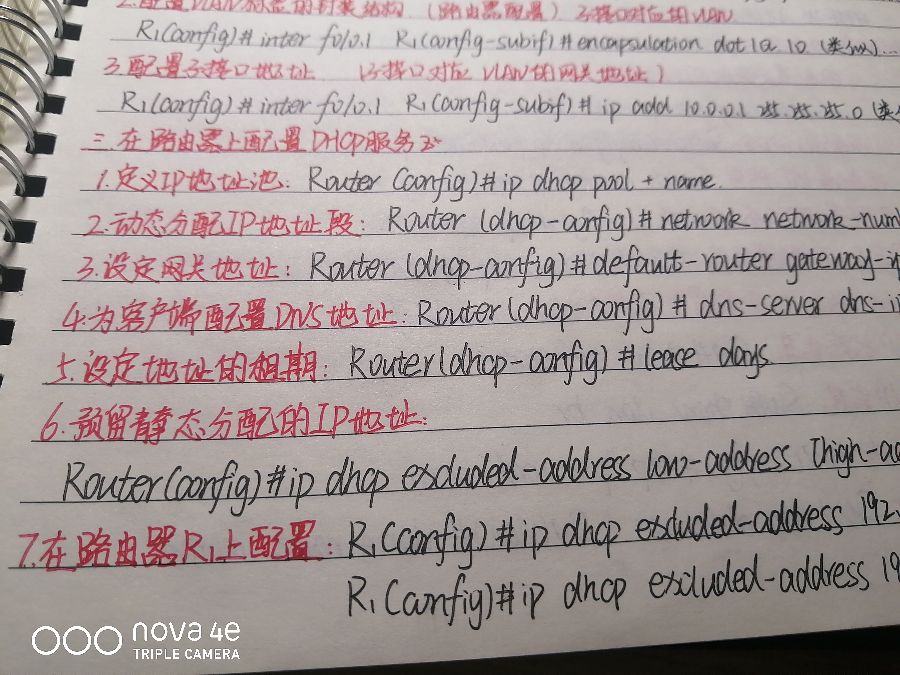 2.配置VLAN标签的封装结构 (路由器配置) 子接口对应的VLAN
R1(config)# inter f0/0.1 R1(config-subif)#encapsulation dot1Q 10 (类似)...
3.配置子接口地址 (子接口对应 VLAN的网关地址)
R1(config)# inter f0/0.1 R1(config-subif)# ip add 10.0.0.1 255.255.255.0
三.在路由器上配置DHCP服务
1.定义IP地址池: Router (config)# ip dhcp pool + name.
2.动态分配IP地址段: Router (dhcp-config)# network network-num
3.设定网关地址: Router (dhcp-config)#default-router gateway-
4.为客户端配置DNS地址: Router(dhcp-config)# dns-server dns-i
5.设定地址的租期: Router(dhcp-config)#lease days
6.预留静态分配的IP地址:
Router(config)#ip dhcp excluded-address low-address [high-ad
7.在路由器R1上配置: R1(config)#ip dhcp excluded-address 192.
R1(config)#ip dhcp excluded-address 19
nova 4e
TRIPLE CAMERA